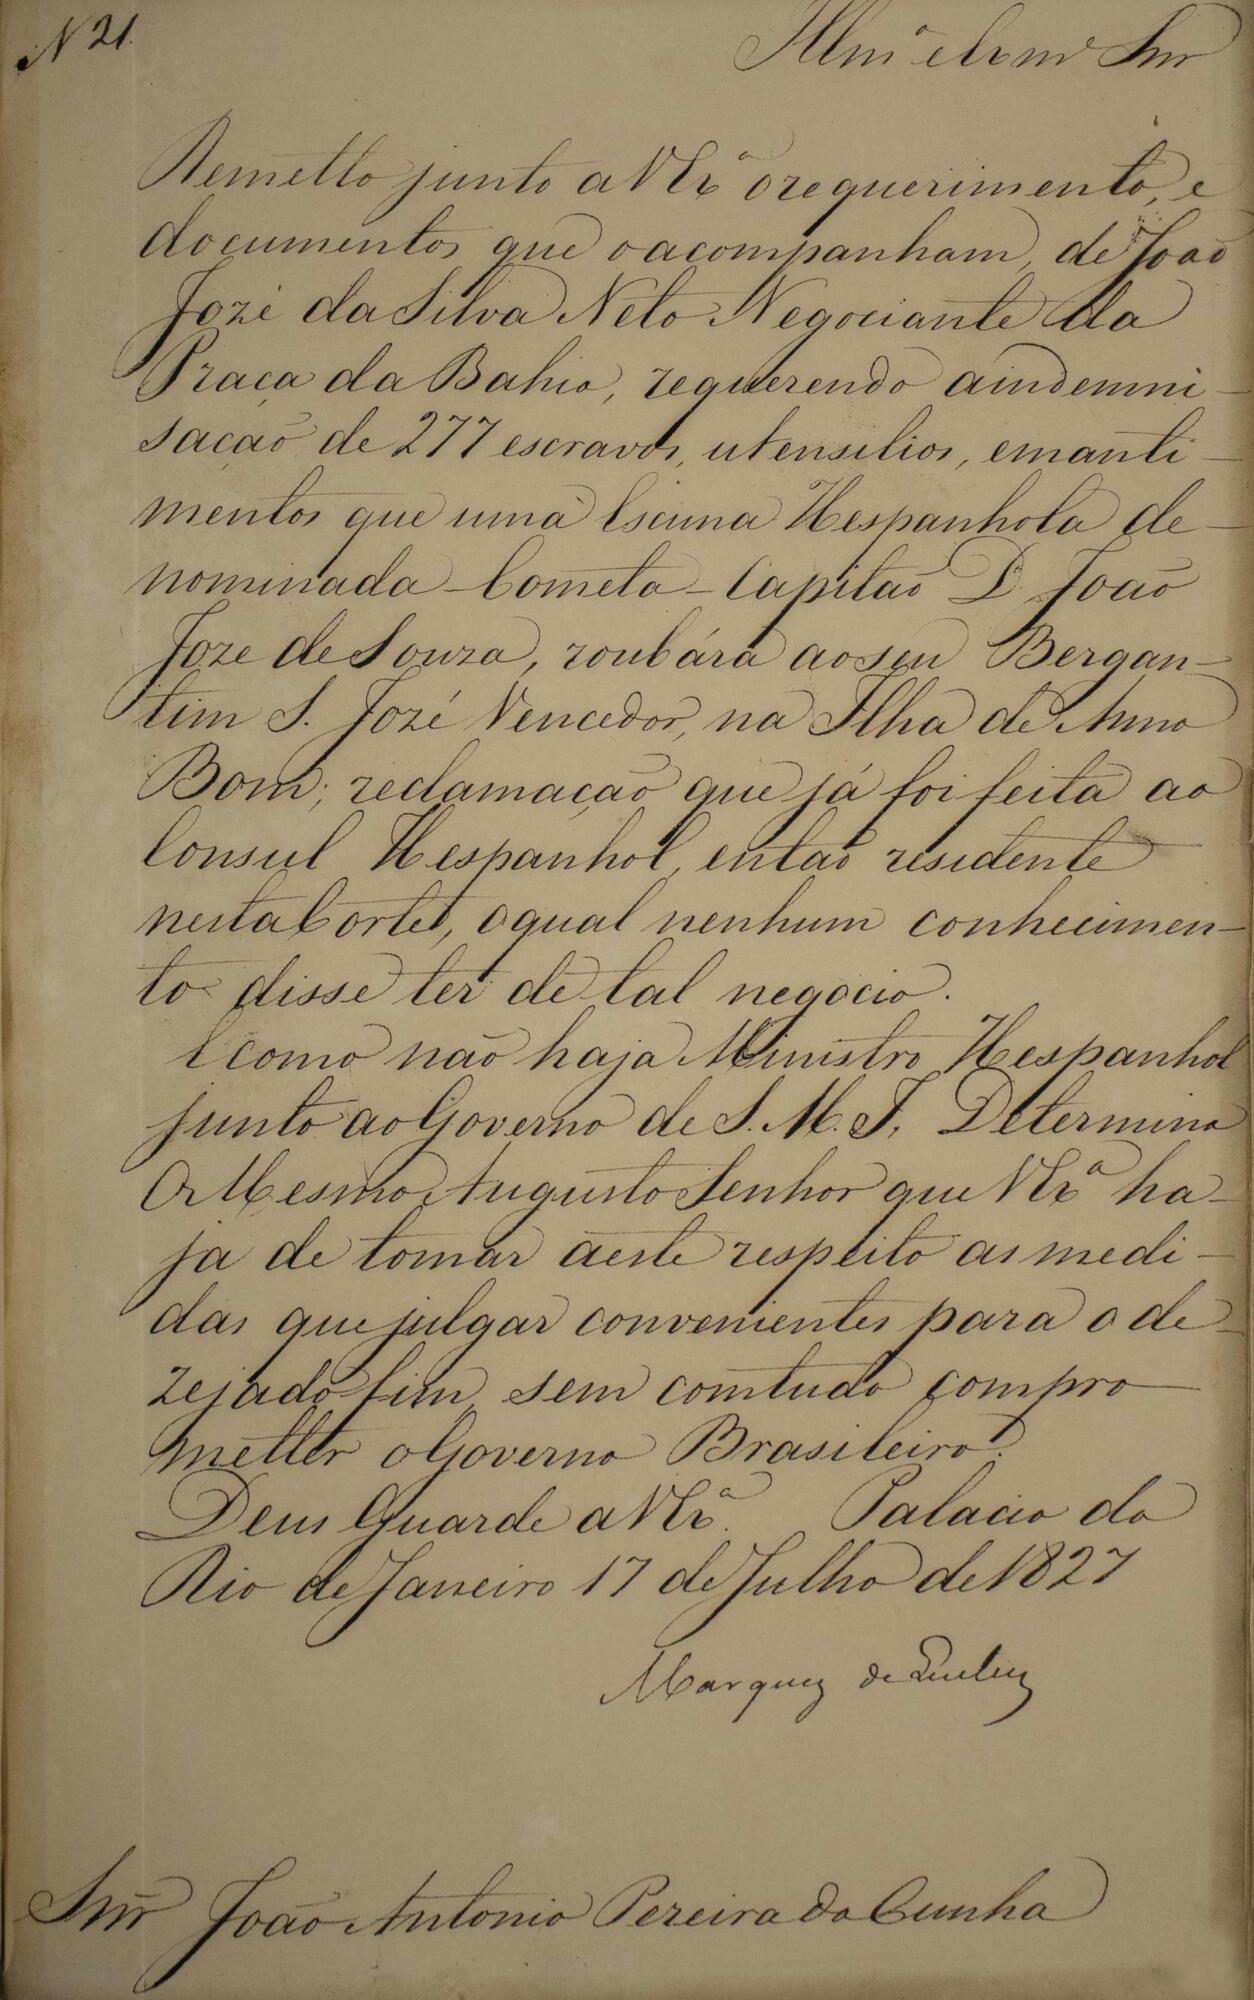 N 21.
Illmº e Exmº Snr
Remetto junto a V Exª o requerimento, e
documentos que o acompanham, de João
Jozé da Silva Neto Negociante da
Praça da Bahia, requerendo a indemni-
sação de 277 escravos, utensilios, e manti-
mentos que uma Escuna Hespanhola de-
nominada - Cometa - Capitão D. João
Joze de Souza, roubára ao seu Bergan-
tim S. Jozé Vencedor, na Ilha de Anno
Bom; reclamação que já foi feita ao
Consul Hespanhol, então residente
nesta Corte, o qual nenhum conhecimen-
to disse ter de tal negocio.
E como não haja Ministro Hespanhol
junto ao Governo de S. M. I, Determina
O Mesmo Augusto Senhor que V Exª ha-
ja de tomar a este respeito as medi-
das que julgar convenientes para o de-
zejado fim, sem comtudo compro-
metter o Governo Brasileiro.
Deus Guarde a V Exª. Palacio do
Rio de Janeiro 17 de Julho de 1827
Marquez de Queluz
Snr João Antonio Pereira da Cunha